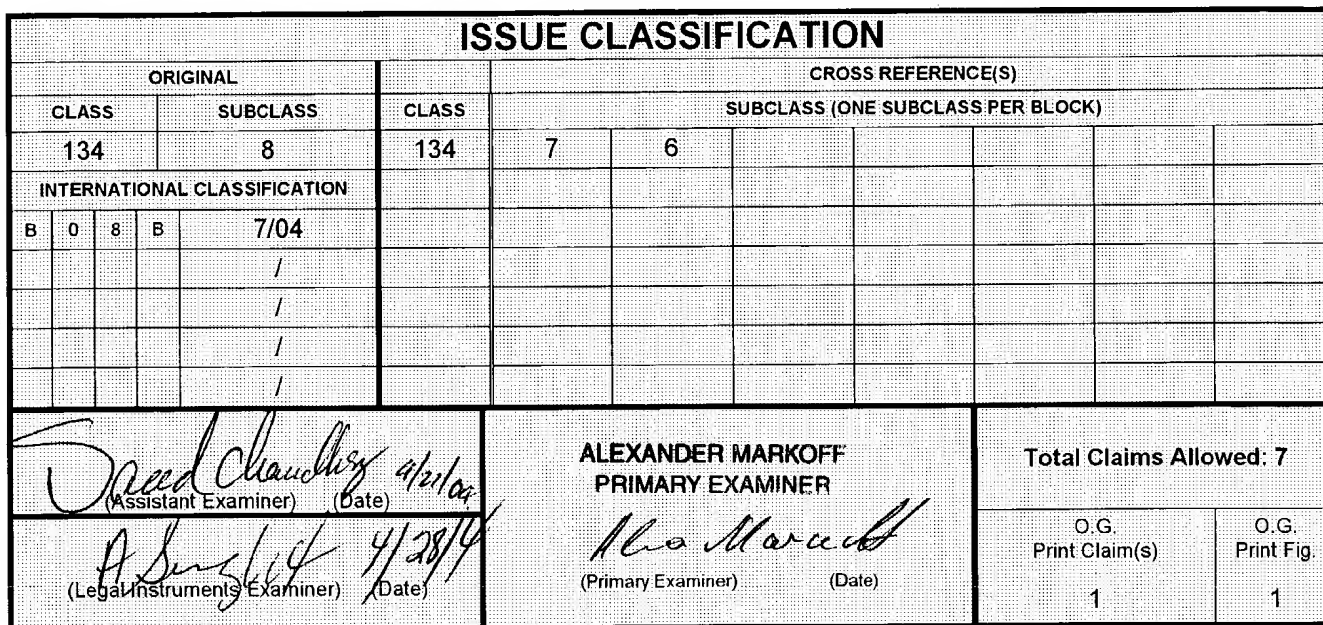 ISSUE CLASSIFICATION
ORIGINAL CROSS REFERENCE(S)
CLASS SUBCLASS CLASS SUBCLASS (ONE SUBCLASS PER BLOCK)
134 8 134 7 6
INTERNATIONAL CLASSIFICATION
B 0 8 B 7/04
/
/
/
/
Saeed Chaudhry
(Assistant Examiner) (Date)
4/28/4
(Legal Instruments Examiner) (Date)
ALEXANDER MARKOFF
PRIMARY EXAMINER
(Primary Examiner) (Date)
Total Claims Allowed: 7
O.G.
Print Claim(s)
1
O.G.
Print Fig.
1